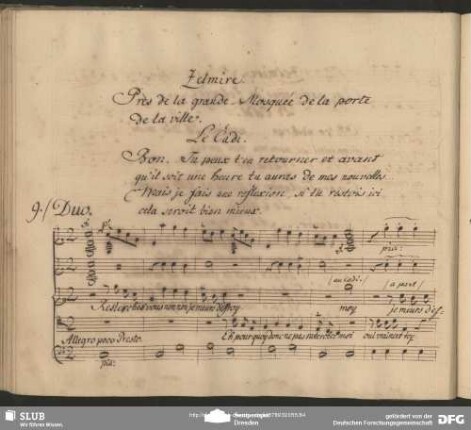 Zelmire
Près de la grande Mosquée de la porte
de la ville.
Le Cadi.
Bon. Tu peux t'en retourner et avant
qu'il soit une heure tu auras de mes nouvelles
Mais je fais une reflexion, si tu restois ici
cela seroit bien mieux.
9./ Duo.
pia:
au cadi
a part
Rester chez vous non non je meurs d'effroy
moy
je meurs d'ef:
Allegro poco Presto
Eh pourquoy donc ne pas rester chez moi
oui vraiment icy
pia:
SLUB
Wir führen Wissen.
Dresden
gefördert von der
Deutschen Forschungsgemeinschaft
DFG